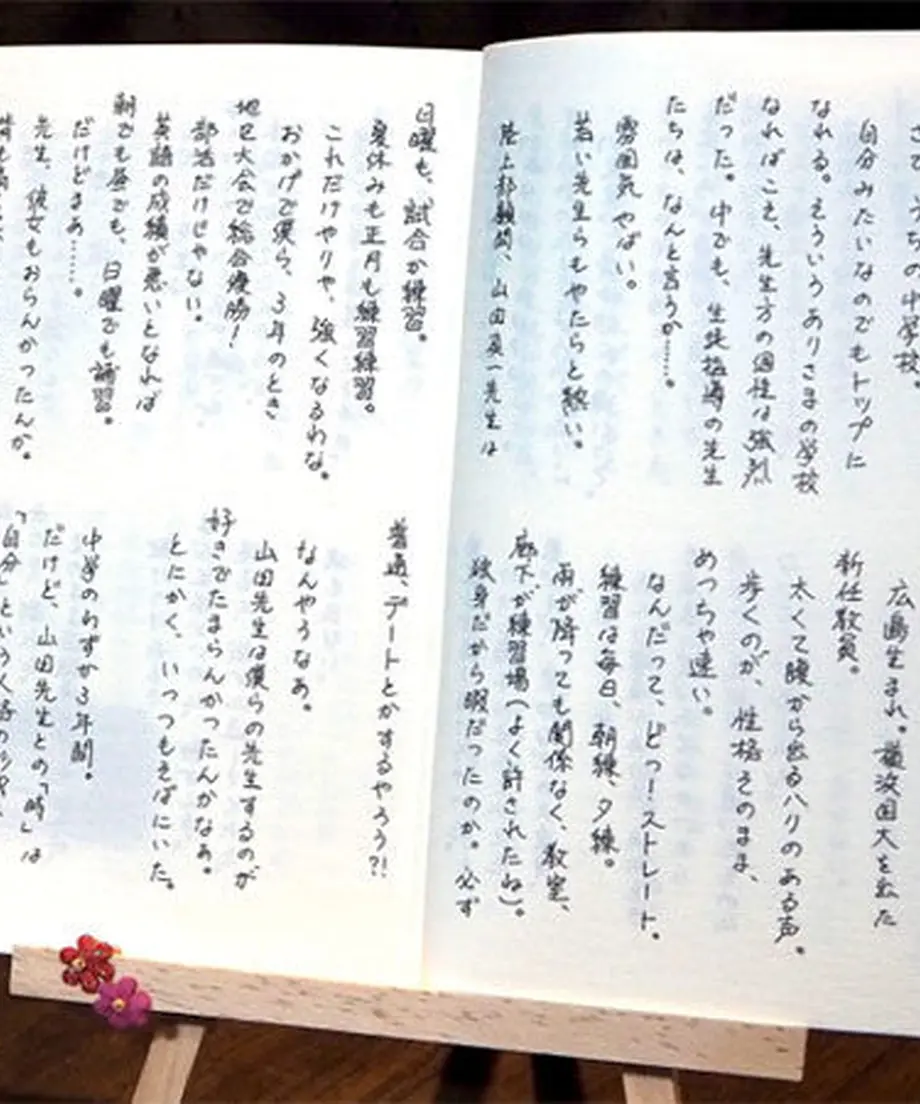 うちの中学校、
自分みたいなのでもトップに
なれる。そういうありさまの学校
なればこそ、先生方の個性は強烈
だった。中でも、生徒指導の先生
たちは、なんと言うか……。
雰囲気やばい。
若い先生らもやたらと熱い。
陸上部顧問、山田英一先生は
広島生まれ。横浜国大を出た
新任教員。
太くて腹から出るハリのある声。
歩くのが、性格そのまま、
めっちゃ速い。
なんだって、どっ!ストレート。
練習は毎日、朝練、夕練。
雨が降っても関係なく、教室、
廊下が練習場(よく許されたね)。
独身だから暇だったのか。必ず
日曜も、試合か練習。
夏休みも正月も練習練習。
これだけやりゃ、強くなるわな。
おかげで僕ら、3年のとき
地区大会で総合優勝!
部活だけじゃない。
英語の成績が悪いとなれば
朝でも昼でも、日曜でも補習。
だけどまあ……。
先生、彼女もおらんかったんか。
普通、デートとかするやろう?!
なんやろなあ。
山田先生は僕らの先生するのが
好きでたまらんかったんかなぁ。
とにかく、いっつもそばにいた。
中学のわずか3年間。
だけど、山田先生との「時」は
「自分」という人